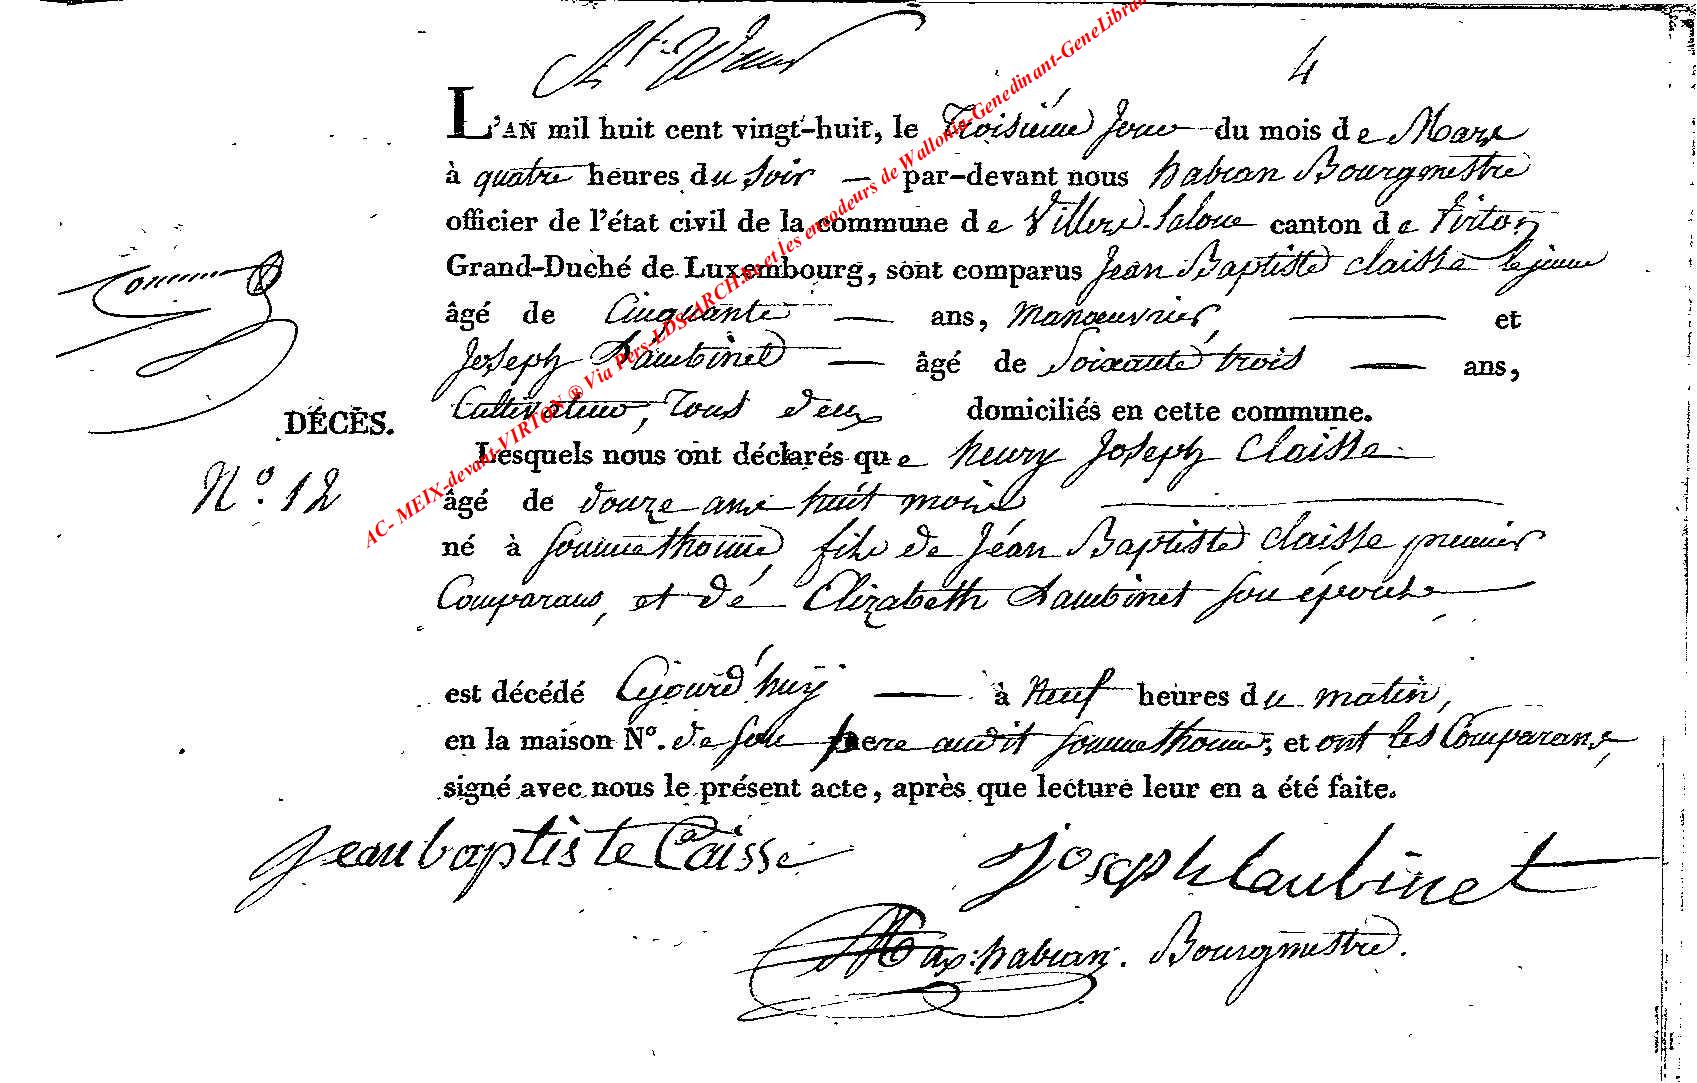 4
L'AN mil huit cent vingt-huit, le troisiéme jour du mois de Mars
à quatre heures du soir — par-devant nous habran Bourgmestre
officier de l'état civil de la commune de Villers-laloue canton de Virton
Grand-Duché de Luxembourg, sont comparus Jean Baptiste Claisse le jeune
âgé de Cinquante — ans, Manœuvrier, — et
Joseph Laubinet — âgé de Soixante trois — ans,
Cultivateur, tous deux domiciliés en cette commune.
DÉCÈS.
Lesquels nous ont déclarés que henry Joseph Claisse
N.º 12
âgé de douze ans huit mois
né à Sommethonne, fils de Jéan Baptiste Claisse premier
Comparans, et dé Elizabeth Laubinet son épouse
est décédé Cejourd'huy — à Neuf heures du matin,
en la maison Nº. de son pere audit Sommethonne, et ont les Comparans,
signé avec nous le présent acte, après que lecture leur en a été faite.
Jean baptiste Claisse Joseph Laubinet
Max: habran. Bourgmestre.
AC- MEIX-devant-VIRTON ® Via Pers-LDS-ARCH.be et les encodeurs de Wallonia-Genedinant-GeneLibrai